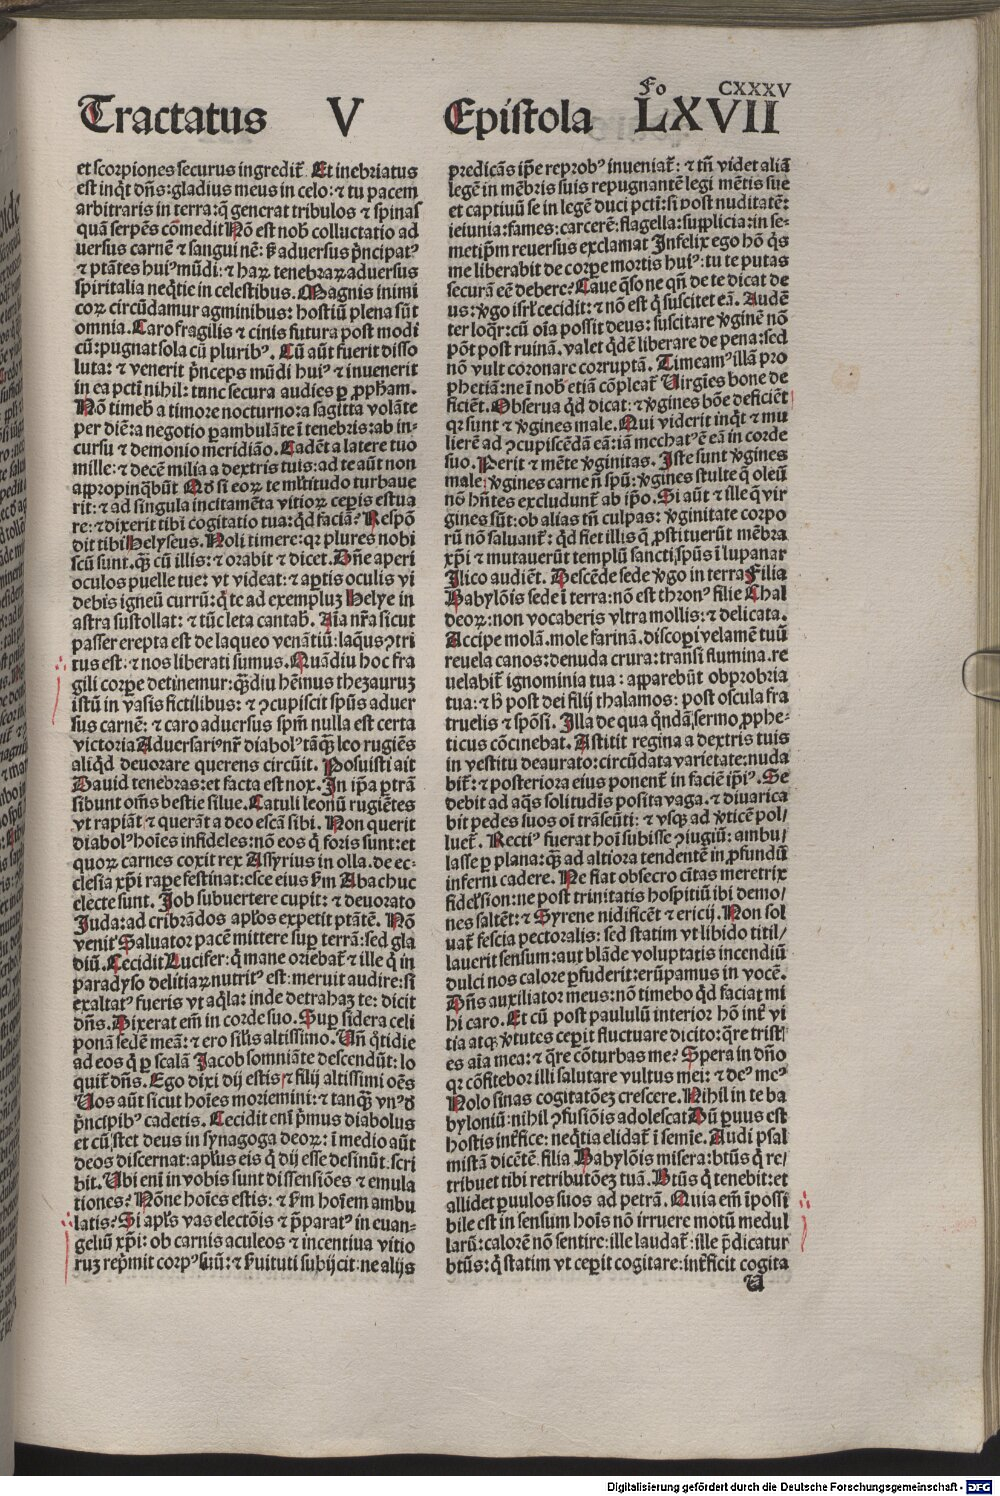 Fo CXXXV
Tractatus V Epistola LXVII
et scorpiones securus ingredit᷑. Et inebriatus
est inq̃t dñs: gladius meus in celo: ⁊ tu pacem
arbitraris in terra: q̃ generat tribulos ⁊ spinas
quã serpẽs comedit Nõ est nob̃ colluctatio ad
versus carnẽ ⁊ sanguinẽ: s̃ adversus pͥncipatꝰ
⁊ ptãtes huiꝰ mũdi: ⁊ haꝝ tenebraꝝ adversus
spiritalia neq̃tie in celestibus. Magnis inimi
coꝝ circũdamur agminibus: hostiũ plena sũt
omnia. Caro fragilis ⁊ cinis futura post modi
cũ: pugnat sola cũ pluribꝰ. Cũ aũt fuerit disso
luta: ⁊ venerit pͥnceps mũdi huiꝰ ⁊ invenerit
in ea pctĩ nihil: tunc secura audies ꝑ ꝓpham.
Nõ timeb̃ a timore nocturno: a sagitta volãte
per diẽ: a negotio ꝑambulãte ĩ tenebris: ab in-
cursu ⁊ demonio meridião. Cadẽt a latere tuo
mille: ⁊ decẽ milia a dextris tuis: ad te aũt non
appropinq̃bũt Qd̃ si eoꝝ te multitudo turbave
rit: ⁊ ad singula incitamẽta vitioꝝ ceꝑis estua
re: ⁊ dixerit tibi cogitatio tua: qd̃ faciã? Respõ
dit tibi Helyseus. Noli timere: qꝛ plures nobi
scũ sunt. qꝫ cũ illis: ⁊ orabit ⁊ dicet. Dñe aperi
oculos puelle tue: vt videat: ⁊ aꝑtis oculis vi
debis igneũ currũ: q̃ te ad exempluz Helye in
astra sustollat: ⁊ tũc leta cantab̃. Aĩa nr̃a sicut
passer erepta est de laqueo venãtiũ: laq̃us ꝯtri
tus est: ⁊ nos liberati sumus. Quãdiu hoc fra
gili corꝑe detinemur: qꝫdiu hẽmus thezauruz
istũ in vasis fictilibus: ⁊ ꝯcupiscit spũs adver
sus carnẽ: ⁊ caro adversus spm̃ nulla est certa
victoria Adversariꝰ nr̃ diabolꝰ tãqꝫ leo rugiẽs
aliq̃d devorare querens circũit. Posuisti ait
David tenebras: et facta est nox. In ip̃a ꝑtrã
sibunt oms̃ bestie silue. Catuli leonũ rugiẽtes
vt rapiãt ⁊ querãt a deo escã sibi. Non querit
diabolꝰ hoĩes infideles: nõ eos q̃ foris sunt: et
quoꝝ carnes coxit rex Assyrius in olla. de ec-
clesia xp̃i raꝑe festinat: esce eius s̃m Abachuc
electe sunt. Job subvertere cupit: ⁊ devorato
Juda: ad cribrãdos aplõs expetit ptãtẽ. Nõ
venit Salvator pacẽ mittere suꝑ terrã: sed gla
diũ. Cecidit Lucifer: q̃ mane oriebat᷑ ⁊ ille q̃ in
paradyso delitiaꝝ nutritꝰ est: meruit audire: si
exaltatꝰ fueris vt aq̃la: inde detrahaz te: dicit
dñs. Dixerat em̃ in corde suo. Suꝑ sidera celi
ponã sedẽ meã: ⁊ ero sil̃is altissimo. Uñ q̃tidie
ad eos q̃ ꝑ scalã Jacob somniãte descendũt: lo
quit᷑ dñs. Ego dixi dij estis ⁊ filij altissimi oẽs
Uos aũt sicut hoĩes moriemini: ⁊ tanqꝫ vnꝰ d̃
pͥncipibꝰ cadetis. Cecidit enĩ pͥmus diabolus
et cũ stet deus in synagoga deoꝝ: ĩ medio aũt
deos discernat: aplũs eis q̃ dij esse desinũt. scri
bit. Ubi enĩ in vobis sunt dissensiões ⁊ emula
tiones? Nõne hoĩes estis: ⁊ s̃m hoĩem ambu
latis? Si apl̃s vas electõis ⁊ p̃paratꝰ in evan-
geliũ xp̃i: ob carnis aculeos ⁊ incentiva vitio
ruz repͥmit corpꝰ suũ: ⁊ s̃vituti subijcit: ne alijs
predicãs ip̃e reprobꝰ inveniat᷑: ⁊ tñ videt aliã
legẽ in mẽbris suis repugnantẽ legi mẽtis sue
et captivũ se in legẽ duci pctĩ: si post nuditatẽ:
ieiunia: fames: carcerẽ: flagella: supplicia: in se-
metip̃m reversus exclamat Infelix ego hõ q̃s
me liberabit de corꝑe mortis huiꝰ: tu te putas
securã eẽ debere? Caue q̃so ne qñ de te dicat de
us: v̓go isrl̃ cecidit: ⁊ nõ est q̃ suscitet eã. Audẽ
ter loq̃r: cũ oĩa possit deus: suscitare v̓ginẽ nõ
põt post ruinã. valet q̃dẽ liberare de pena: sed
nõ vult coronare corruptã. Timeamꝰ illã pro
phetiã: ne ĩ nob̃ etiã cõpleat᷑ Uirgies bone de
ficiẽt. Observa qd̃ dicat: ⁊ v̓gines bõe deficiẽt
qꝛ sunt ⁊ v̓gines male. Qui viderit inq̃t ⁊ mu
lierẽ ad ꝯcupiscẽdã eã: iã mechatꝰ ẽ eã in corde
suo. Perit ⁊ mẽte v̓ginitas. Iste sunt v̓gines
male: v̓gines carne ñ spũ: v̓gines stulte q̃ oleũ
nõ hñtes excludunt᷑ ab sp̃o. Si aũt ⁊ ille q̃ vir
gines sũt: ob alias tñ culpas: v̓ginitate corpo
rũ nõ salvant᷑: qd̃ fiet illis q̃ ꝓstituerũt mẽbra
xp̃i ⁊ mutaverũt templũ sancti spũs ĩ lupanar
Ilico audiẽt. Descẽde sede v̓go in terra Filia
Babylõis sede ĩ terra: nõ est thronꝰ filie Chal
deoꝝ: non vocaberis vltra mollis: ⁊ delicata.
Accipe molã. mole farinã. discoꝑi velamẽ tuũ
revela canos: denuda crura: transi flumina. re
velabit᷑ ignominia tua: apparebũt obprobria
tua: ⁊ h̃ post dei filij thalamos: post oscula fra
truelis ⁊ spõsi. Illa de qua q̃ndã sermo ꝓphe-
ticus cõcinebat. Astitit regina a dextris tuis
in vestitu deaurato: circũdata varietate: nuda
bit᷑: ⁊ posteriora eius ponent᷑ in faciẽ ip̃iꝰ. Se
debit ad aq̃s solitudis̃ posita vaga. ⁊ divarica
bit pedes suos oĩ trãseũti: ⁊ vsqꝫ ad v̓ticẽ pol/
luet᷑. Rectiꝰ fuerat hoĩ subisse ꝯiugiũ: ambu/
lasse ꝑ plana: qꝫ ad altiora tendentẽ in ꝓfundũ
inferni cadere. Ne fiat obsecro cĩtas meretrix
fidel̃ sion: ne post trinitatis hospitiũ ibi demo/
nes saltẽt: ⁊ Syrene nidificẽt ⁊ ericij. Non sol
vat᷑ fescia pectoralis: sed statim vt libido titil/
laverit sensum: aut blãde voluptatis incendiũ
dulci nos calore ꝑfuderit: erũpamus in vocẽ.
Dñs auxiliator meus: nõ timebo qd̃ faciat mi
hi caro. Et cũ post paululũ interior hõ int᷑ vi
tia atqꝫ v̓tutes ceꝑit fluctuare dicito: q̃re trist/
es aĩa mea: ⁊ q̃re cõturbas me? Spera in dño
qꝛ cõfitebor illi salutare vultus mei: ⁊ deꝰ meꝰ
Nolo sinas cogitatõez crescere. Nihil in te ba
byloniũ: nihil ꝯfusiõis adolescat Dũ ꝑuus est
hostis int᷑fice: neq̃tia elidat᷑ ĩ semĩe. Audi psal
mistã dicẽtẽ. filia Babylõis misera: btũs q̃ re/
tribuet tibi retributõez tuã. Btũs q̃ tenebit: et
allidet ꝑuulos suos ad petrã. Quia em̃ ĩpossi
bile est in sensum hoĩs nõ irruere motũ medul
larũ: calorẽ nõ sentire: ille laudat᷑: ille p̃dicatur
btũs: q̃ statim vt ceꝑit cogitare: int᷑ficit cogita
Digitalisierung gefördert durch die Deutsche Forschungsgemeinschaft - DFG